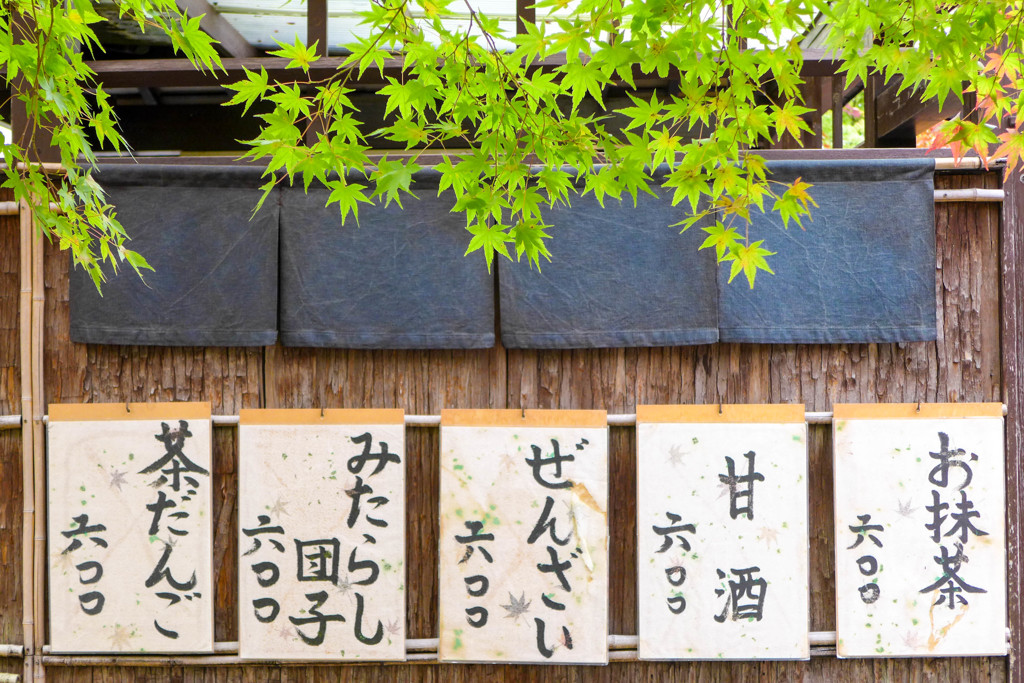 お抹茶
六〇〇
甘酒
六〇〇
ぜんざい
六〇〇
みたらし
団子
六〇〇
茶だんご
六〇〇